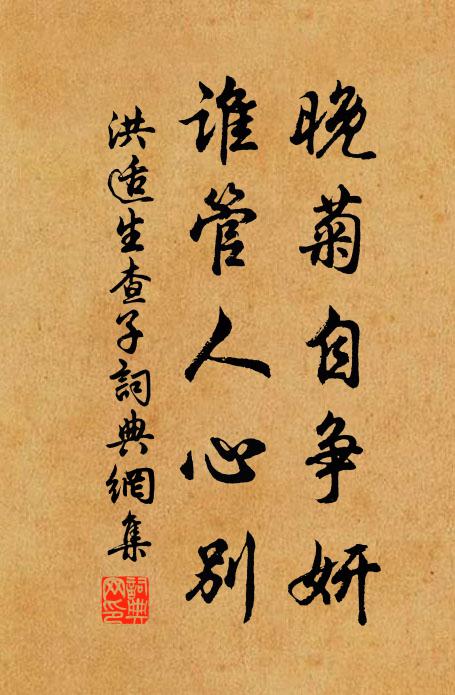 晚菊自争妍
谁管人心别
洪适生查子詞典網集
詞典网印